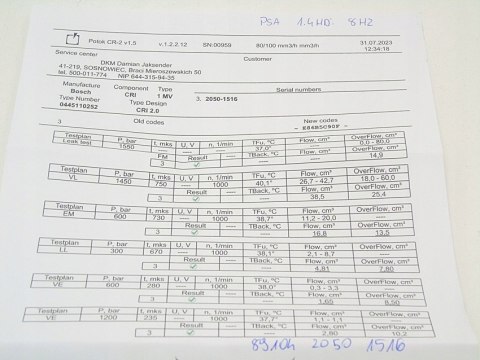 PSA 1.4HD 8H2
Potok CR-2 v1.5 v.1.2.2.12 SN:00959 80/100 mm3/h mm3/h 31.07.2023
12:34:18
Service center Customer
DKM Damian Jaksender
41-219, SOSNOWIEC, Braci Mieroszewskich 50
tel. 500-011-774 NIP 644-315-94-35
Manufacture Component Type Serial numbers
Bosch CRI 1 MV 3. 2050-1516
Type Number Type Design
0445110252 CRI 2.0
3 Old codes New codes
Testplan P, bar t, mks U, V n, 1/min TFu, °C Flow, cm³ OverFlow, cm³
Leak test 1550 ---- ---- 37,0° ---- 0,0 - 80,0
FM Result TBack, °C Flow, cm³ OverFlow, cm³
3 ---- ---- 14,9
Testplan P, bar t, mks U, V n, 1/min TFu, °C Flow, cm³ OverFlow, cm³
VL 1450 750 ---- 1000 40,1° 26,7 - 42,7 18,0 - 60,0
Result TBack, °C Flow, cm³ OverFlow, cm³
3 ---- 38,5 25,4
Testplan P, bar t, mks U, V n, 1/min TFu, °C Flow, cm³ OverFlow, cm³
EM 600 730 ---- 1000 38,7° 11,2 - 20,0 ----
Result TBack, °C Flow, cm³ OverFlow, cm³
3 ---- 16,8 13,5
Testplan P, bar t, mks U, V n, 1/min TFu, °C Flow, cm³ OverFlow, cm³
LL 300 670 ---- 1000 38,1° 2,1 - 8,7 ----
Result TBack, °C Flow, cm³ OverFlow, cm³
3 ---- 4,81 7,80
Testplan P, bar t, mks U, V n, 1/min TFu, °C Flow, cm³ OverFlow, cm³
VE 600 280 ---- 1000 38,0° 0,3 - 3,3 ----
Result TBack, °C Flow, cm³ OverFlow, cm³
3 ---- 1,65 8,50
Testplan P, bar t, mks U, V n, 1/min TFu, °C Flow, cm³ OverFlow, cm³
VE 1200 235 ---- 1000 37,7° ----
Result TBack, °C Flow, cm³ OverFlow, cm³
3 ---- 2,60 10,2
2050 1516